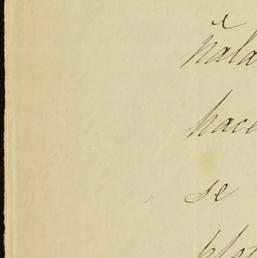 ñala
hace
se